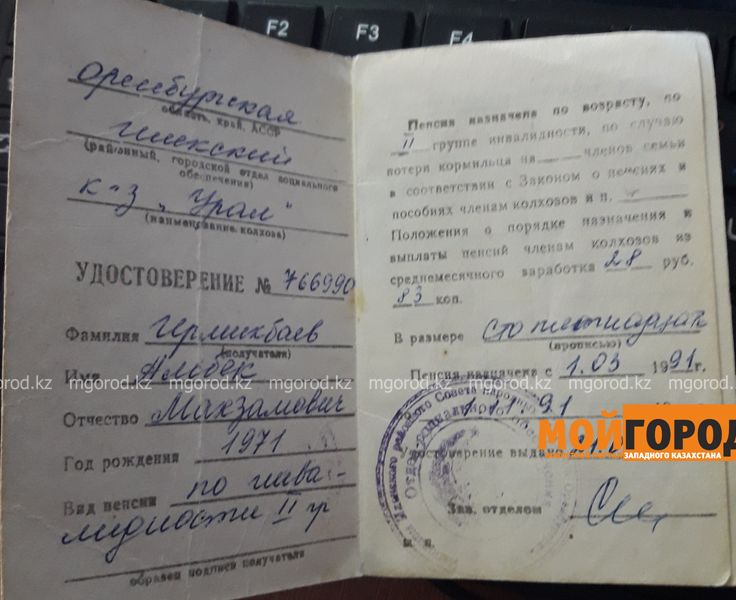 F2
F3
F4
оренбургская
область, край, АССР
илекский
(районный, городской отдел социального
обеспечения)
к-з „Урал"
(наименование колхоза)
УДОСТОВЕРЕНИЕ № 766990
Фамилия
(получателя)
Имя
Отчество Махзамович
Год рождения 1971
Вид пенсии по инва-
лидности II гр
образец подписи получателя
Пенсия назначена по возрасту, по
II группе инвалидности, по случаю
потери кормильца на членов семьи
в соответствии с Законом о пенсиях и
пособиях членам колхозов и п.
Положения о порядке назначения и
выплаты пенсий членам колхозов из
среднемесячного заработка 28 руб.
83 коп.
В размере сто
(прописью)
Пенсия назначена с 1.03 1991г.
91
Удостоверение выдано
Зав. отделом
м. п.
mgorod.kz mgorod.kz mgorod.kz mgorod.kz mgorod.kz mgorod.kz
МОЙГОРОД
ЗАПАДНОГО КАЗАХСТАНА